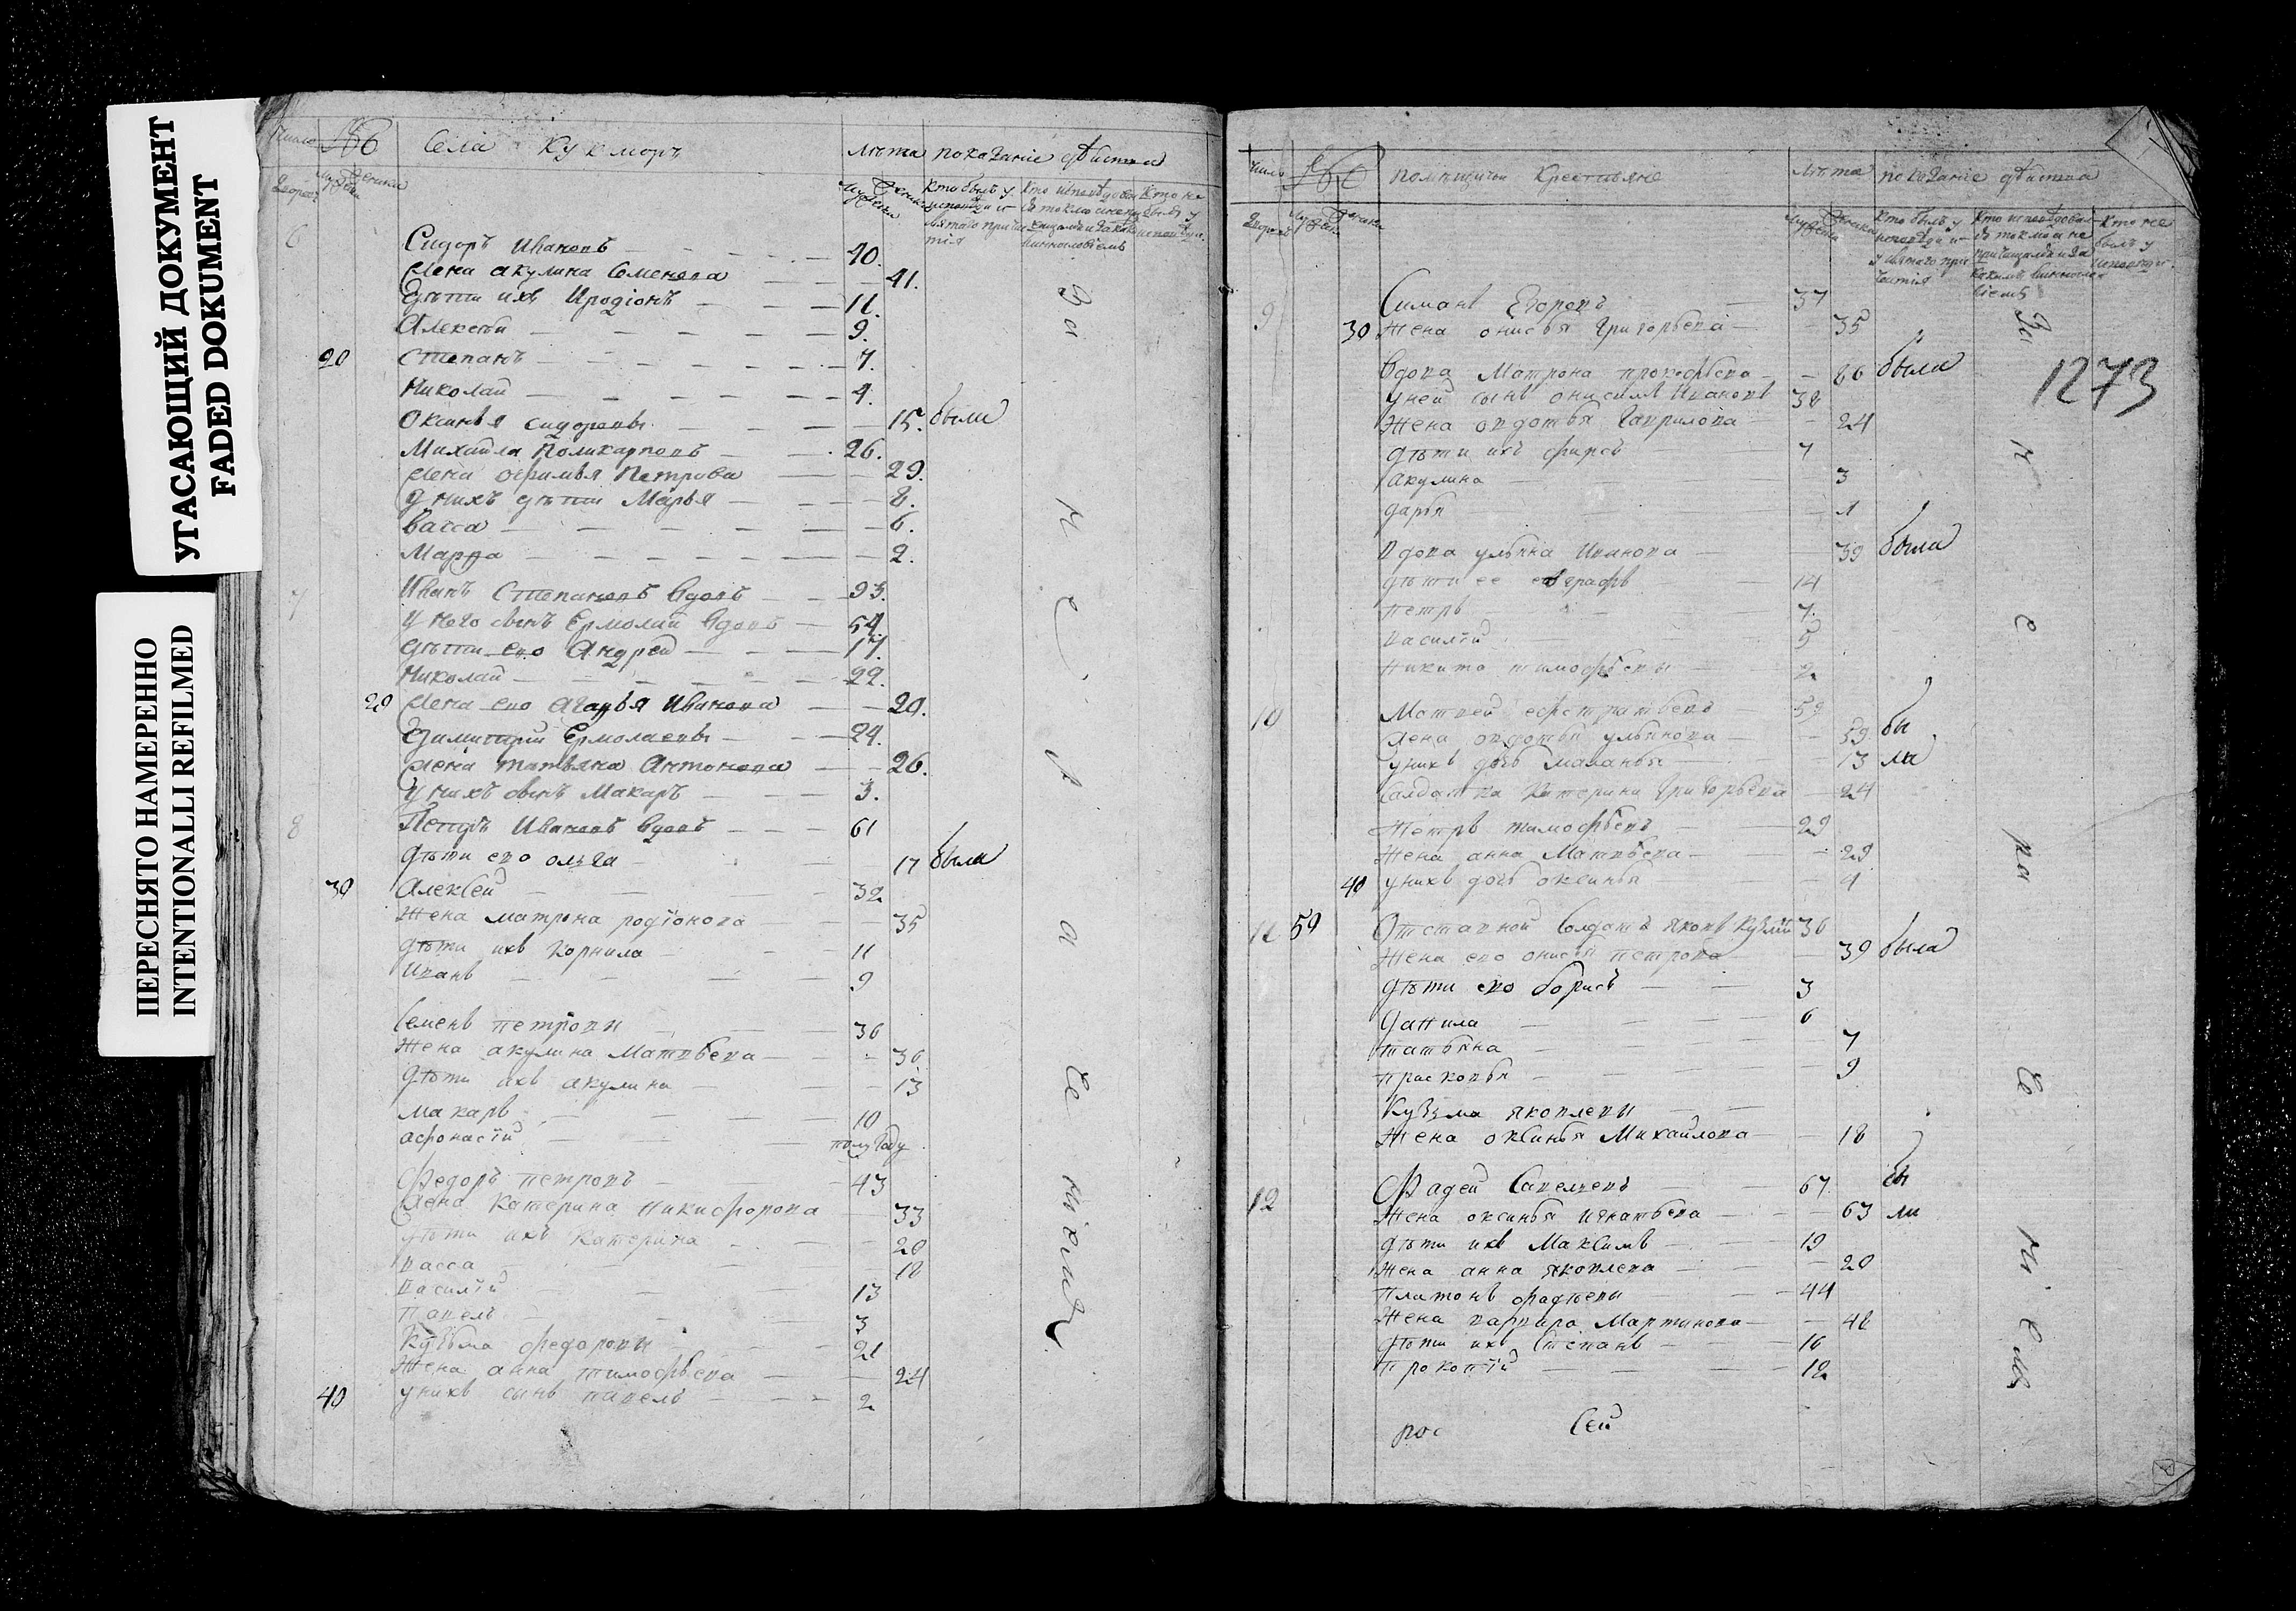 УГАСАЮЩИЙ ДОКУМЕНТ
FADED DOKUMENT
ПЕРЕСНЯТО НАМЕРЕННО
INTENTIONALLI REFILMED
Число №
Села Кукморъ
Лѣта показаніе дѣйства
6 Сидоръ Ивановъ 40.
Жена акулина Семенова 41.
Дѣти ихъ Иродіонъ 11.
Алексѣй 9.
20 Степанъ 7.
Николай 4.
Оксинья сидоровы 15. были
Михайла Поликарповъ 26.
Жена Офимья Петрова 29.
У нихъ дѣти Марья 8.
Васса 6.
Марфа 2.
7 Иванъ Степановъ вдовъ 93.
У него сынъ Ермолай вдовъ 54.
Дѣти ево Андрей 17.
Николай 22.
20 Жена ево Агафья Иванова 20.
Димитрій Ермолаевы 24.
Жена татьяна Антонова 26.
У нихъ сынъ Макаръ 3.
8 Петръ Ивановъ вдовъ 61
дѣти ево ольга 17 была
30 Алексей 32
Жена матрона родіонова 35
дѣти ихъ Корнила 11
Иванъ 9
Семенъ петровъ 36
Жена акулина Матвѣева 36
дѣти ихъ акулина 13
макаръ 10
афонасій полугоду
Федоръ петровъ 43
Жена катерина никифорова 33
дѣти ихъ катерина 20
васса 18
василій 13
павелъ 3
Кузьма федоровы 21
Жена анна тимофѣева 24
40 у нихъ сынъ павелъ 2
За не и а се ніемъ
Число №
помещичьи Крестьяне
Лѣта показаніе дѣйства
9 Симонъ Егоровъ 37
30 Жена онисья григорьева 35
вдова Матрона прокофьева 66 была
у ней сынъ онисимъ Ивановъ 38
Жена овдотья гаврилова 24
дѣти ихъ фирсъ 7
акулина 3
дарья 1
вдова ульяна Иванова 39 была
дѣти ее евграфъ 14
петръ 7.
василій 5
никита тимофѣевы 2
10 Матвей ефстратьевъ 59
Жена овдотья ульянова 59 бы
у нихъ дочь маланья 13 ли
Салдатка Катерина григорьева 24
Петръ тимофѣевъ 29
Жена анна Матвѣева 29
40 у нихъ дочь оксинья 4
11 59 Отставной Солдатъ яковъ Кузмин 36
Жена ево онисья петрова 39 была
дѣти ево борисъ 3
данила 6
татьяна 7
прасковья 9
Кузьма яковлевы
Жена оксинья Михайлова 18
12 Фадей Савельевъ 67. бы
Жена оксинья игнатьева 63 ли
дѣти ихъ Максимъ 19
Жена анна яковлева 20
платонъ фадѣевы 44
Жена варвара Мартинова 48
дѣти ихъ Степанъ 16
прокопій 12
За не ра се ніемъ
1273
рос Сей